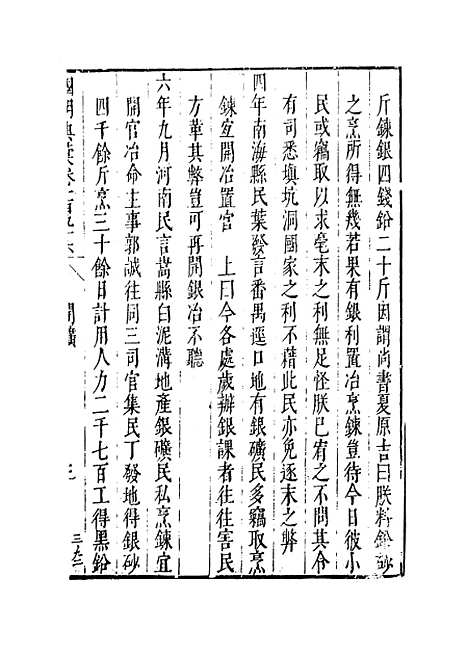 斤鍊銀四錢鉛二十斤因謂尚書夏原吉曰朕料鉛砂
之烹所得無幾若果有銀利置冶烹鍊豈待今日彼小
民或竊取以求毫末之利無足怪朕已宥之不問其令
有司悉填坑洞國家之利不藉此民亦免逐末之弊
四年南海縣民葉發言番禺逕口地有銀礦民多竊取烹
鍊宜開冶置官　上曰今各處歲辦銀課者往往害民
方革其弊豈可再開銀冶不聽
六年九月河南民言嵩縣白泥溝地產銀礦民私烹鍊宜
開官冶命主事郭誠往同三司官集民丁發地得銀砂
四千餘斤烹三十餘日計用人力二千七百工得黑鉛
國朝典彙卷一百九十六
開礦
三